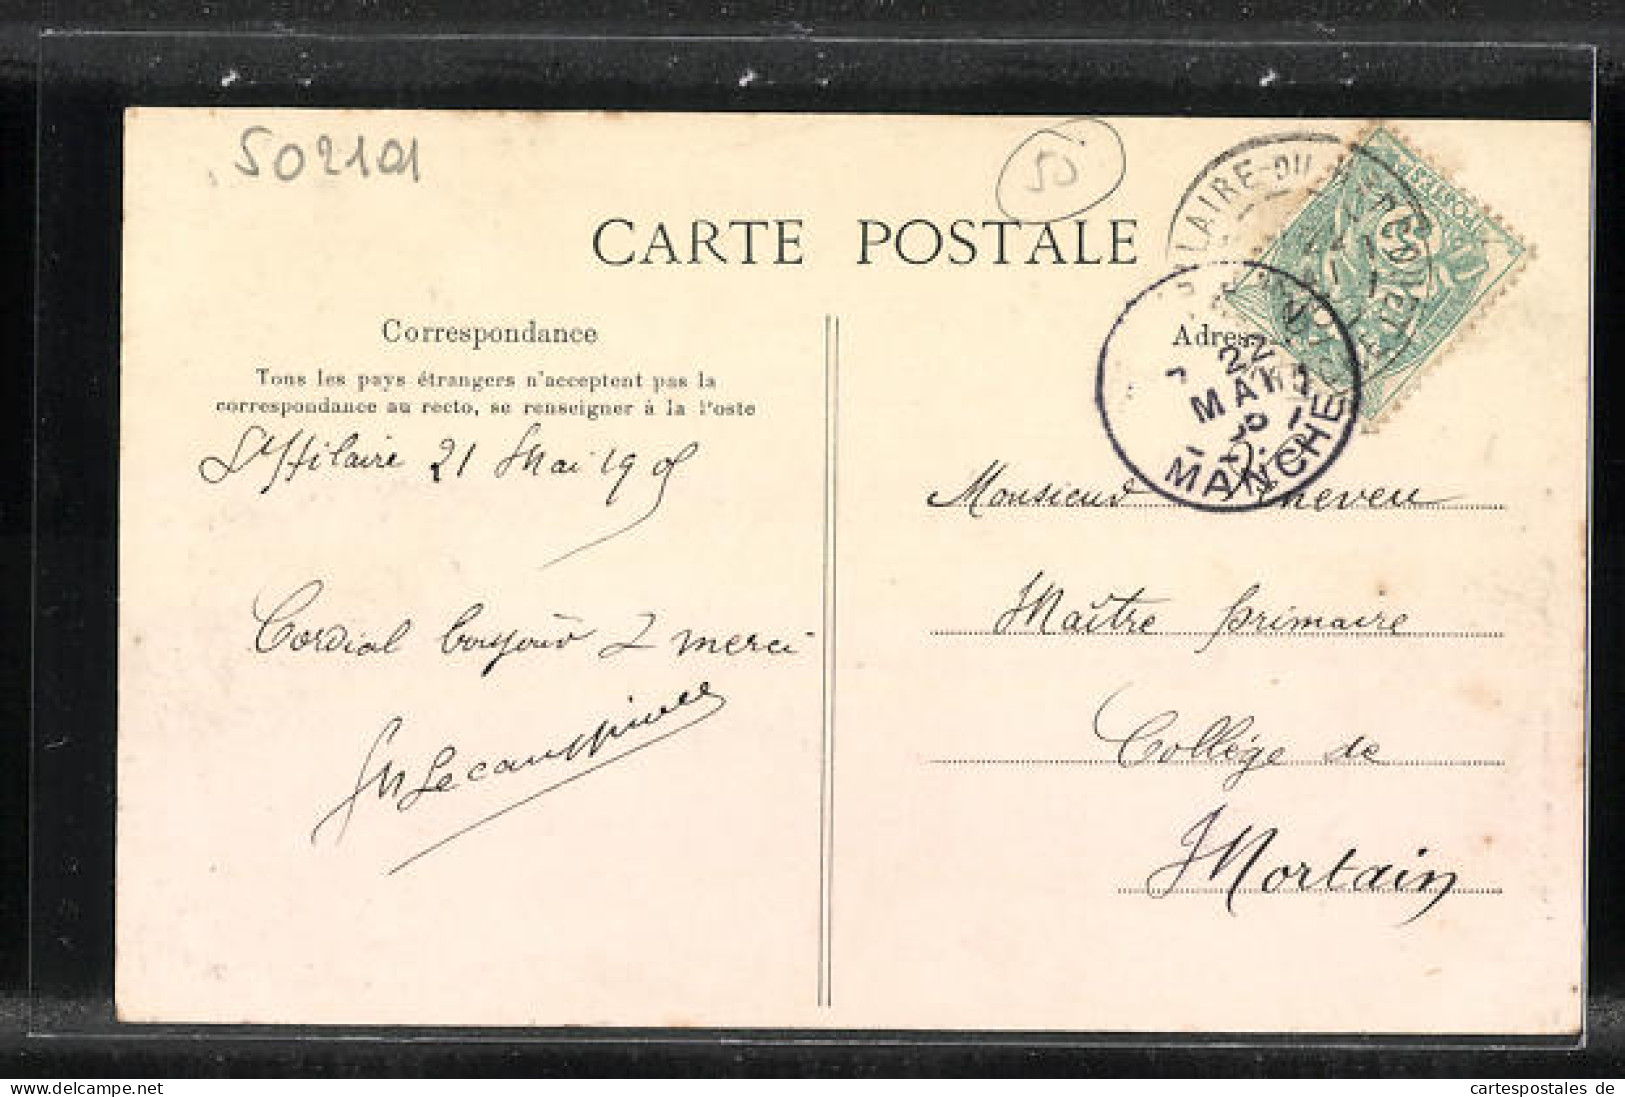 502101
50
CARTE POSTALE
Correspondance
Tous les pays étrangers n'acceptent pas la
correspondance au recto, se renseigner à la Poste
St Hilaire 21 Mai 1905
Cordial bonjour & merci
Adresse
LAIRE-DU-H
22
MAI
MANCHE
Monsieur
Maître primaire
Collège de
Mortain
delcampe.net
cartespostales de